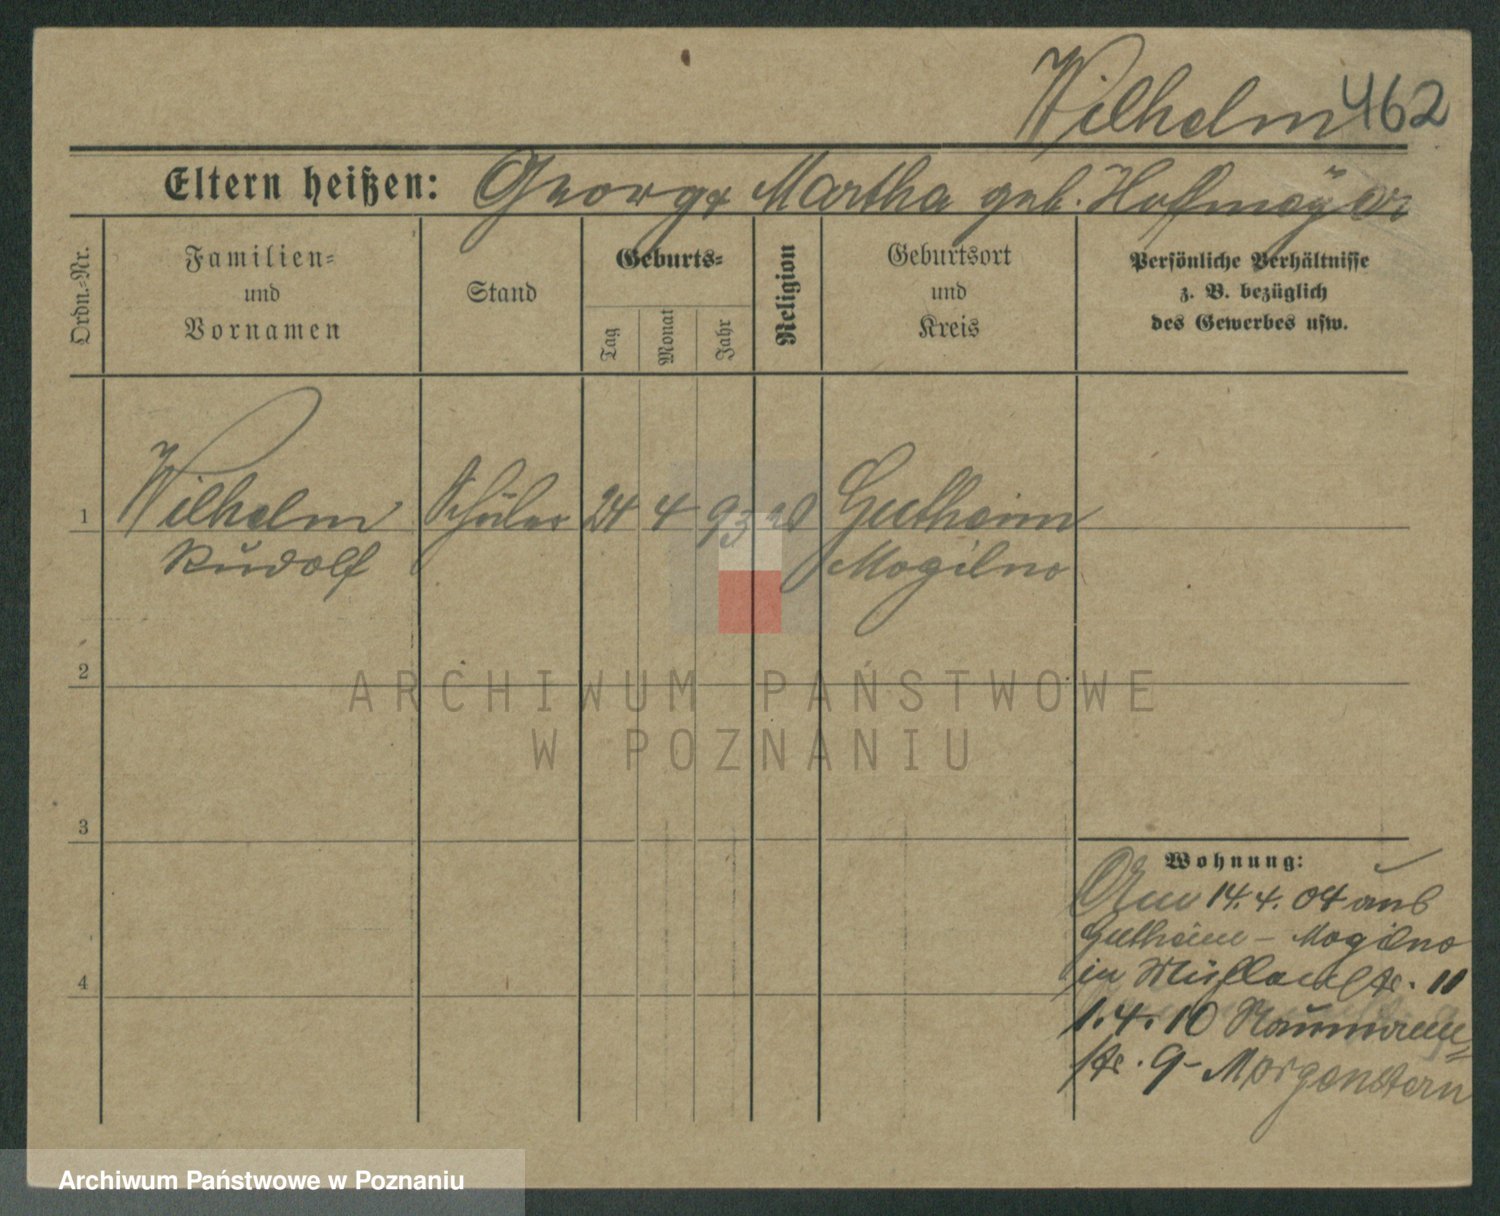 Wilhelm 462
Eltern heißen: George Martha geb. Hofmeÿer
Ordn.=Nr.
Familien=
und
Vornamen
Stand
Geburts=
Tag
Monat
Jahr
Religion
Geburtsort
und
Kreis
Persönliche Verhältnisse
z. B. bezüglich
des Gewerbes usw.
1 Wilhelm Schüler 24 4 93 Gutheim
Rudolf Mogilno
2
3
4
Wohnung:
Am 14.4.04 aus
Gutheim - Mogilno
in str. 11
1.4.10 Naumann=
str. 9 - Morgenstern
ARCHIWUM PAŃSTWOWE
W POZNANIU
Archiwum Państwowe w Poznaniu